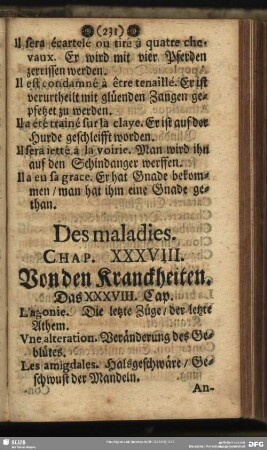 (231)
Il sera écartelé ou tiré à quatre che-
vaux. Er wird mit vier Pferden
zerrissen werden.
Il est condamné à être tenaillé. Er ist
verurtheilt mit glüenden Zangen ge-
pfetzet zu werden.
Il a été trainé sur la claye. Er ist auf der
Hurde geschleifft worden.
Il sera jetté à la voirie. Man wird ihn
auf den Schindanger werffen.
Il a eu sa grace. Er hat Gnade bekom-
men / man hat ihm eine Gnade ge-
than.
Des maladies.
CHAP. XXXVIII.
Von den Kranckheiten.
Das XXXVIII. Cap.
L'agonie. Die letzte Züge / der letzte
Athem.
Vne alteration. Veränderung des Ge-
blütes.
Les amigdales. Halsgeschwäre / Ge-
schwulst der Mandeln.
An-